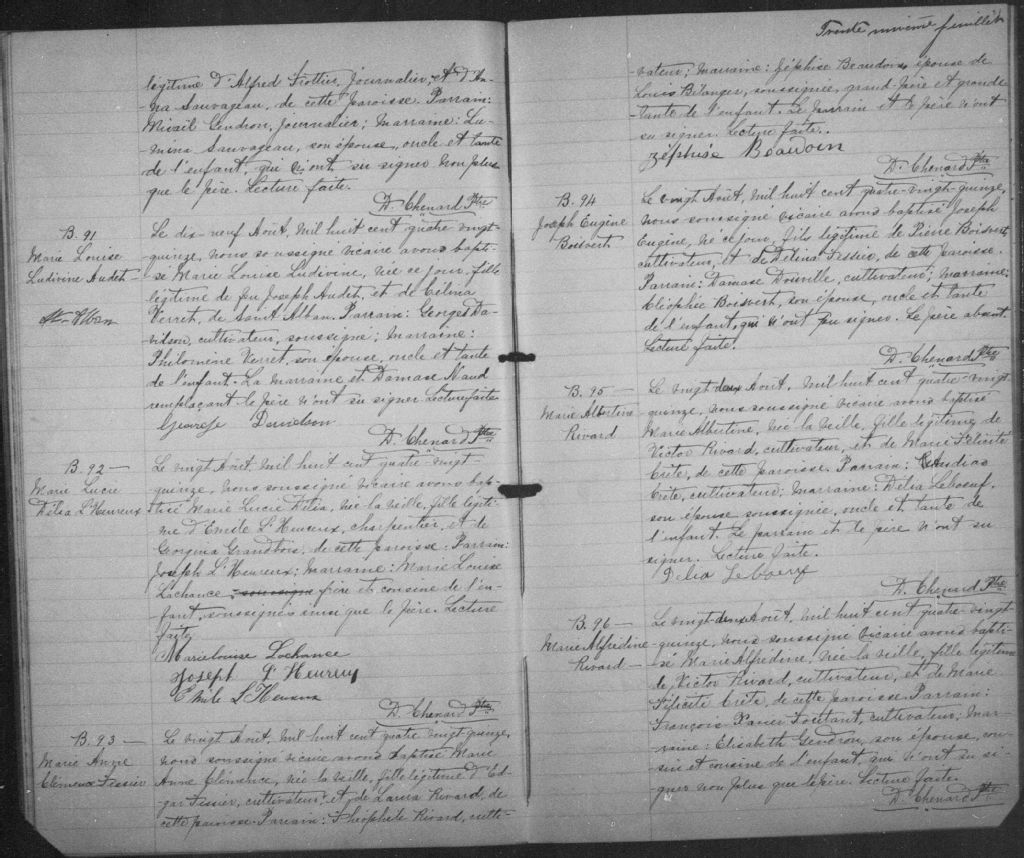 légitime d'Alfred Trottier, journalier, et d'An-
na Sauvageau, de cette paroisse. Parrain:
Misaïl Gendron, journalier; Marraine: Lu-
mina Sauvageau, son épouse, oncle et tante
de l'enfant, qui n'ont su signer non plus
que le père. Lecture faite.
D. Chenard Ptre
B. 91
Marie Louise
Ludivine Audet
St-Alban
Le dix-neuf Août, mil huit cent quatre-vingt-
quinze, nous soussigné vicaire avons bapti-
sé Marie Louise Ludivine, née ce jour, fille
légitime de feu Joseph Audet, et de
Verret, de Saint Alban. Parrain: Georges Da-
vidson, cultivateur, soussigné; marraine:
Philomène Verret, son épouse, oncle et tante
de l'enfant. La marraine et Damase Naud
remplaçant le père n'ont su signer. Lecture faite
George Davidson
D. Chenard Ptre
B. 92 —
Marie Lucie
Délia L'Heureux
Le vingt Août, mil huit cent quatre-vingt-
quinze, nous soussigné vicaire avons bap-
tisé Marie Lucie Délia, née la veille, fille légiti-
me d'Emile L'Heureux, charpentier, et de
Georgina Grandbois, de cette paroisse. Parrain:
Joseph L'Heureux; marraine: Marie Louise
Lachance, soussigné frère et cousine de l'en-
fant, soussignés ainsi que le père. Lecture
faite
Marie louise Lachance
Joseph L'Heureux
Emile L'Heureux
D. Chenard Ptre
B. 93 —
Marie Anne
Clémence Tessier
Le vingt Août, mil huit cent quatre vingt quinze,
nous soussigné vicaire avons baptisé Marie
Anne Clémence, née la veille, fille légitime d'Ed-
gar Tessier, cultivateur, et de Laura Rivard, de
cette paroisse. Parrain: Théophile Rivard, culti-
Trente neuvième feuillet
-vateur; marraine: Zéphise Beaudoin, épouse de
Louis Bélanger, soussignée, grand-père et grande
tante de l'enfant. Le parrain et le père n'ont
su signer. Lecture faite.
Zéphise Beaudoin
D. Chenard Ptre
B. 94
Joseph Eugène
Boisvert
Le vingt Août, mil huit cent quatre-vingt-quinze,
nous soussigné vicaire avons baptisé Joseph
Eugène, né ce jour, fils légitime de Pierre Boisvert
cultivateur, et de Délina Tessier, de cette paroisse.
Parrain: Damase Douville, cultivateur; marraine:
Cléophée Boisvert, son épouse, oncle et tante
de l'enfant, qui n'ont pu signer. Le père absent.
Lecture faite.
D. Chenard Ptre
B. 95 —
Marie Albertine
Rivard
Le vingt deux Août, mil huit cent quatre-vingt
quinze, nous soussigné vicaire avons baptisé
Marie Albertine, née la veille, fille légitime de
Victor Rivard, cultivateur, et de Marie Félicité
Crête, de cette paroisse. Parrain:
Crête, cultivateur; marraine: Délia Leboeuf,
son épouse soussignée, oncle et tante de
l'enfant. Le parrain et le père n'ont su
signer. Lecture faite.
Délia Leboeuf
D. Chenard Ptre
B. 96 —
Marie Alfrédine
Rivard —
Le vingt deux Août, mil huit cent quatre-vingt
quinze, nous soussigné vicaire avons bapti-
sé Marie Alfrédine, née la veille, fille légitime
de Victor Rivard, cultivateur, et de Marie
Félicité Crête, de cette paroisse. Parrain:
François Xavier Toutant, cultivateur; mar-
raine: Elisabeth Gendron, son épouse, cou-
sin et cousine de l'enfant, qui n'ont su si-
gner non plus que le père. Lecture faite.
D. Chenard Ptre